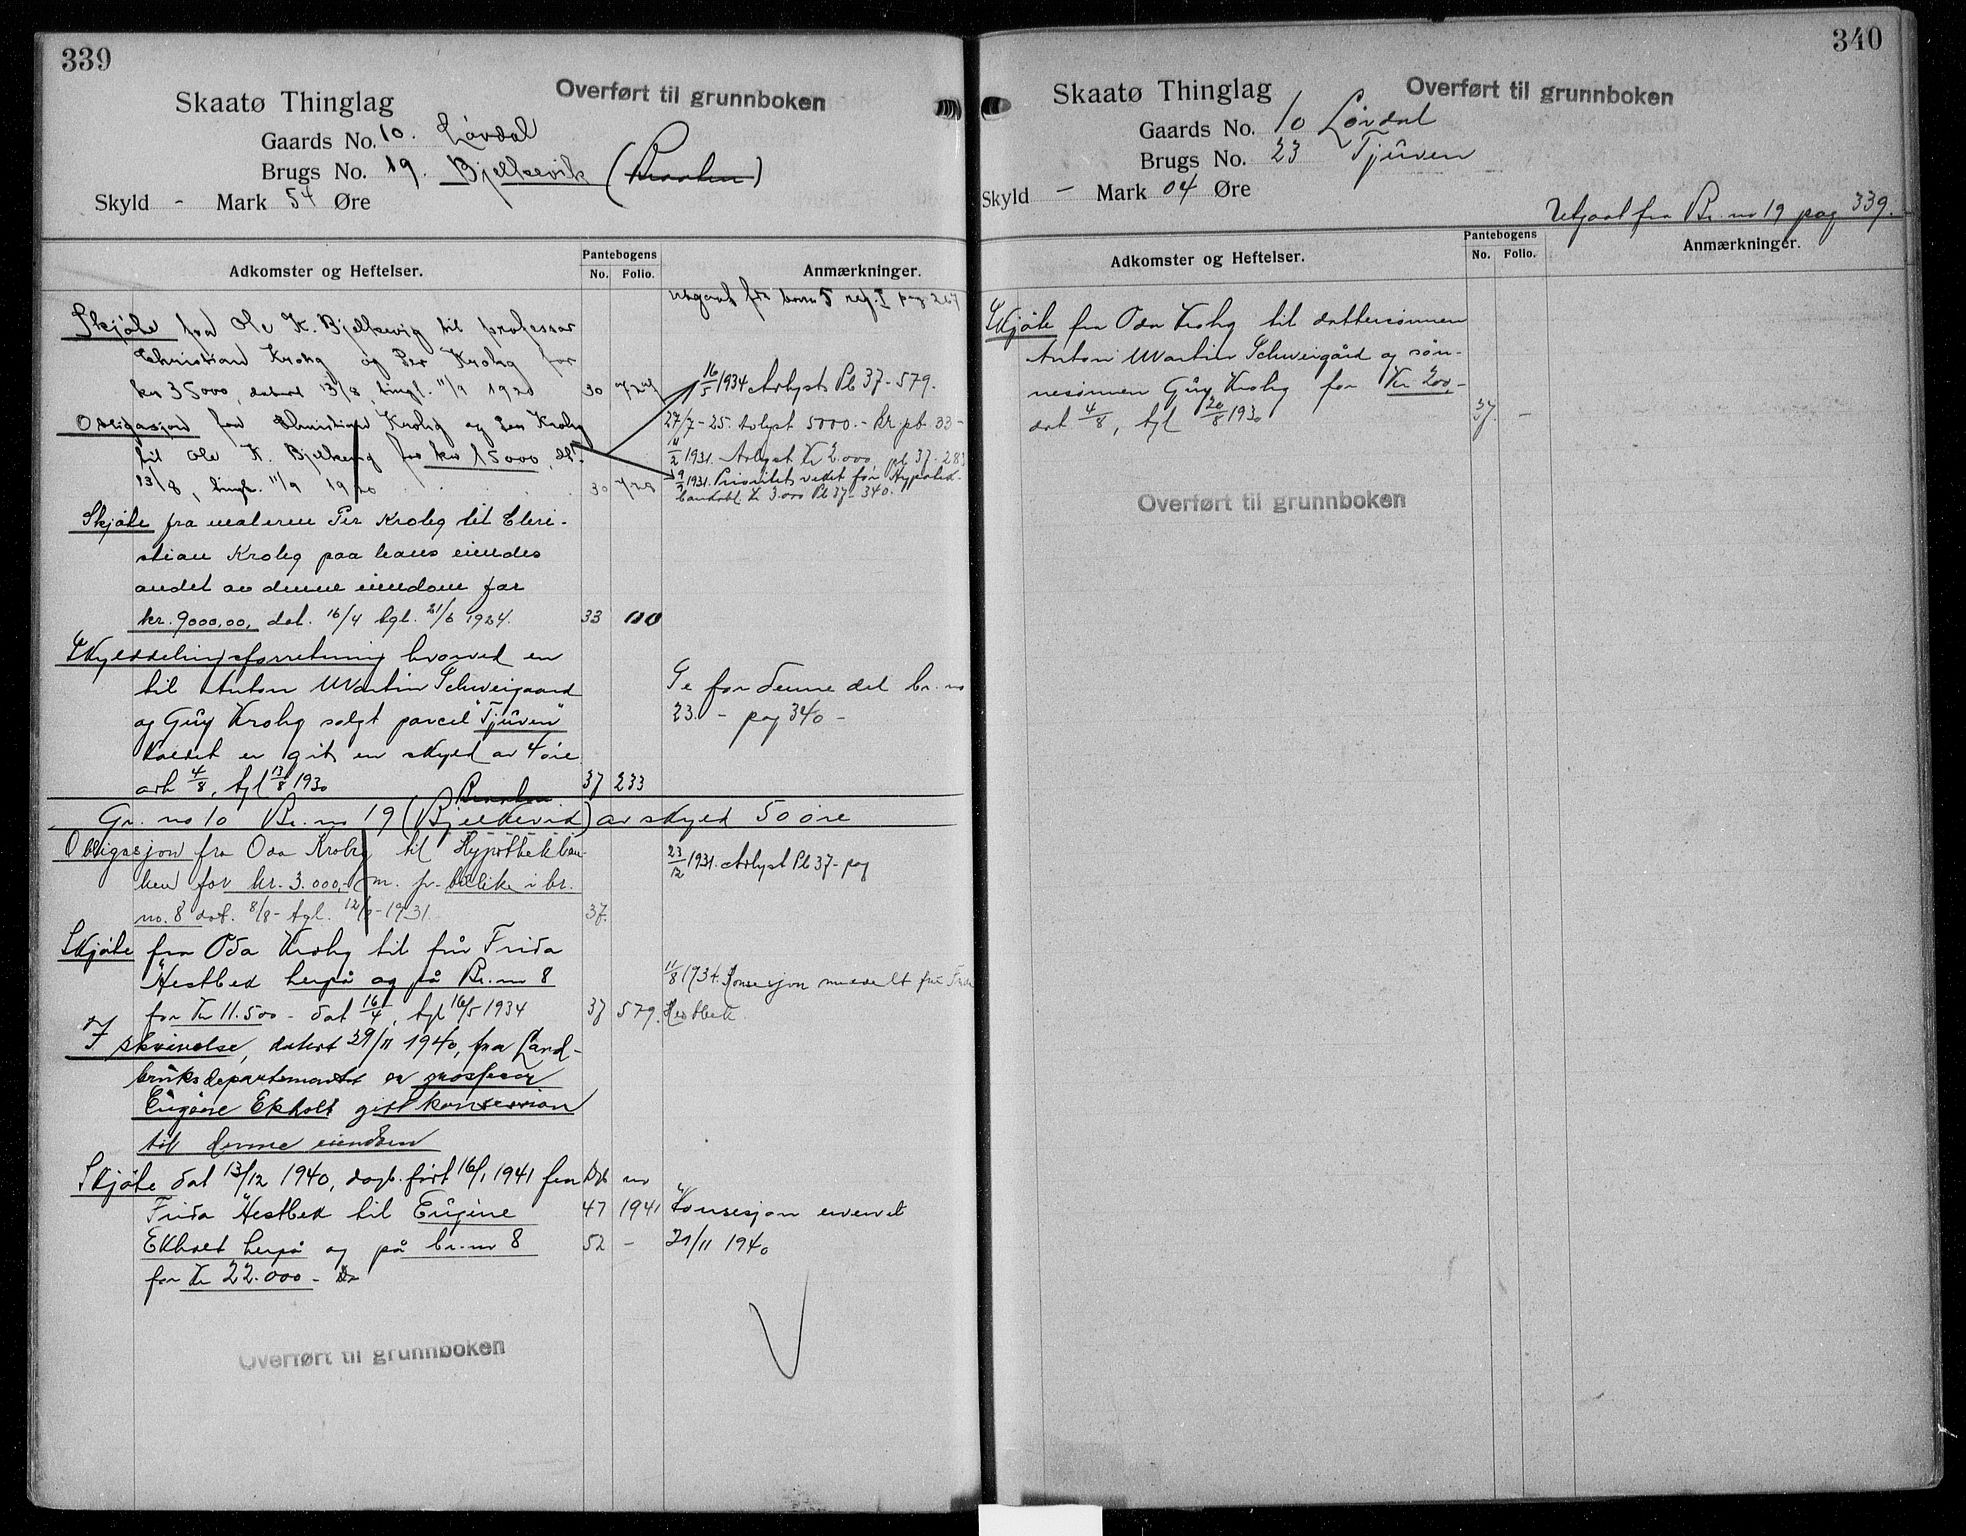 339
Skaatø Thinglag
Overført til grunnboken
Gaards No. 10. Løvdal
Brugs No. 19. Bjelkevik (Braaten)
Skyld - Mark 54 Øre
Adkomster og Heftelser.
Pantebogens
No. Folio.
Anmærkninger.
Utgaat fra brno 5 reg. I pag 267
Skjøte fra Ole K. Bjelkevig til professor
Christian Krohg og Per Krohg for
kr 35000, datert 13/8, tingl. 11/9 1920 30 727
16/5 1934 Avlyst Pb 37-579.
Obligasjon fra Christian Krohg og Per Krohg
27/7-25. Avlyst 5000.- kr pb. 33-
til Ole K. Bjelkevig for kr 15000, dt.
11/2 1931. Avlyst Kr 2.000, pb 37-283
13/8, tingl. 11/9 1920 30 728
9/9 1931. Prioritet veket for Hypotek-
bankobl. kr 3.000 Pb 37-340.
Skjøte fra maleren Per Krohg til Chri-
stian Krohg paa hans eiendes
andel av denne eiendom for
kr. 9000,00, dat. 16/4 tgl. 21/6 1924. 33 100
Skylddelingsforretning hvorved en
til Anton Martin Schweigaard
Se for denne del br. no
og Guy Krohg solgt parcel "Tjuven"
23. - pag 340 -
kaldet er git en skyld av 4 øre
avh 4/8, tgl 13/8 1930 37 233
Braaten
Gr. no 10 Br. no 19 (Bjelkevik) av skyld 50 øre
Obligasjon fra Oda Krohg til Hypothekban-
23/12 1931. Avlyst Pb 37- pag
ken for kr. 3.000,- m. pr. belike i br.
no. 8 dat. 8/8 - tgl. 12/9-1931. 37.
Skjøte fra Oda Krohg til fru Frida
Hestbek herpå og på Br. no 8
11/8 1934. Konsesjon meddelt fru Frida
for Kr 11.500 - dat 16/4, tgl 16/5 1934 37 579.
Hestbek
I skrivelse, datert 29/11 1940, fra Land-
bruksdepartementet er professor
Eugène Ekholt gitt konsesjon
til denne eiendom
Skjøte dat 13/12 1940, dagb. ført 16/1 1941 fra Db no
Frida Hestbek til Eugène 47 1941
Konsesjon ervervet
Ekholt herpå og på br. no 8 52 -
29/11 1940
for Kr 22.000 -
Overført til grunnboken
340
Skaatø Thinglag
Overført til grunnboken
Gaards No. 10 Løvdal
Brugs No. 23 Tjuven
Skyld - Mark 04 Øre
Utgaat fra Br. no 19 pag 339.
Adkomster og Heftelser.
Pantebogens
No. Folio.
Anmærkninger.
Skjøte fra Oda Krohg til dattersønnen
Anton Martin Schweigård og søn-
nesønnen Guy Krohg for Kr 200,-
dat 4/8, tgl 20/8 1930 37. -
Overført til grunnboken